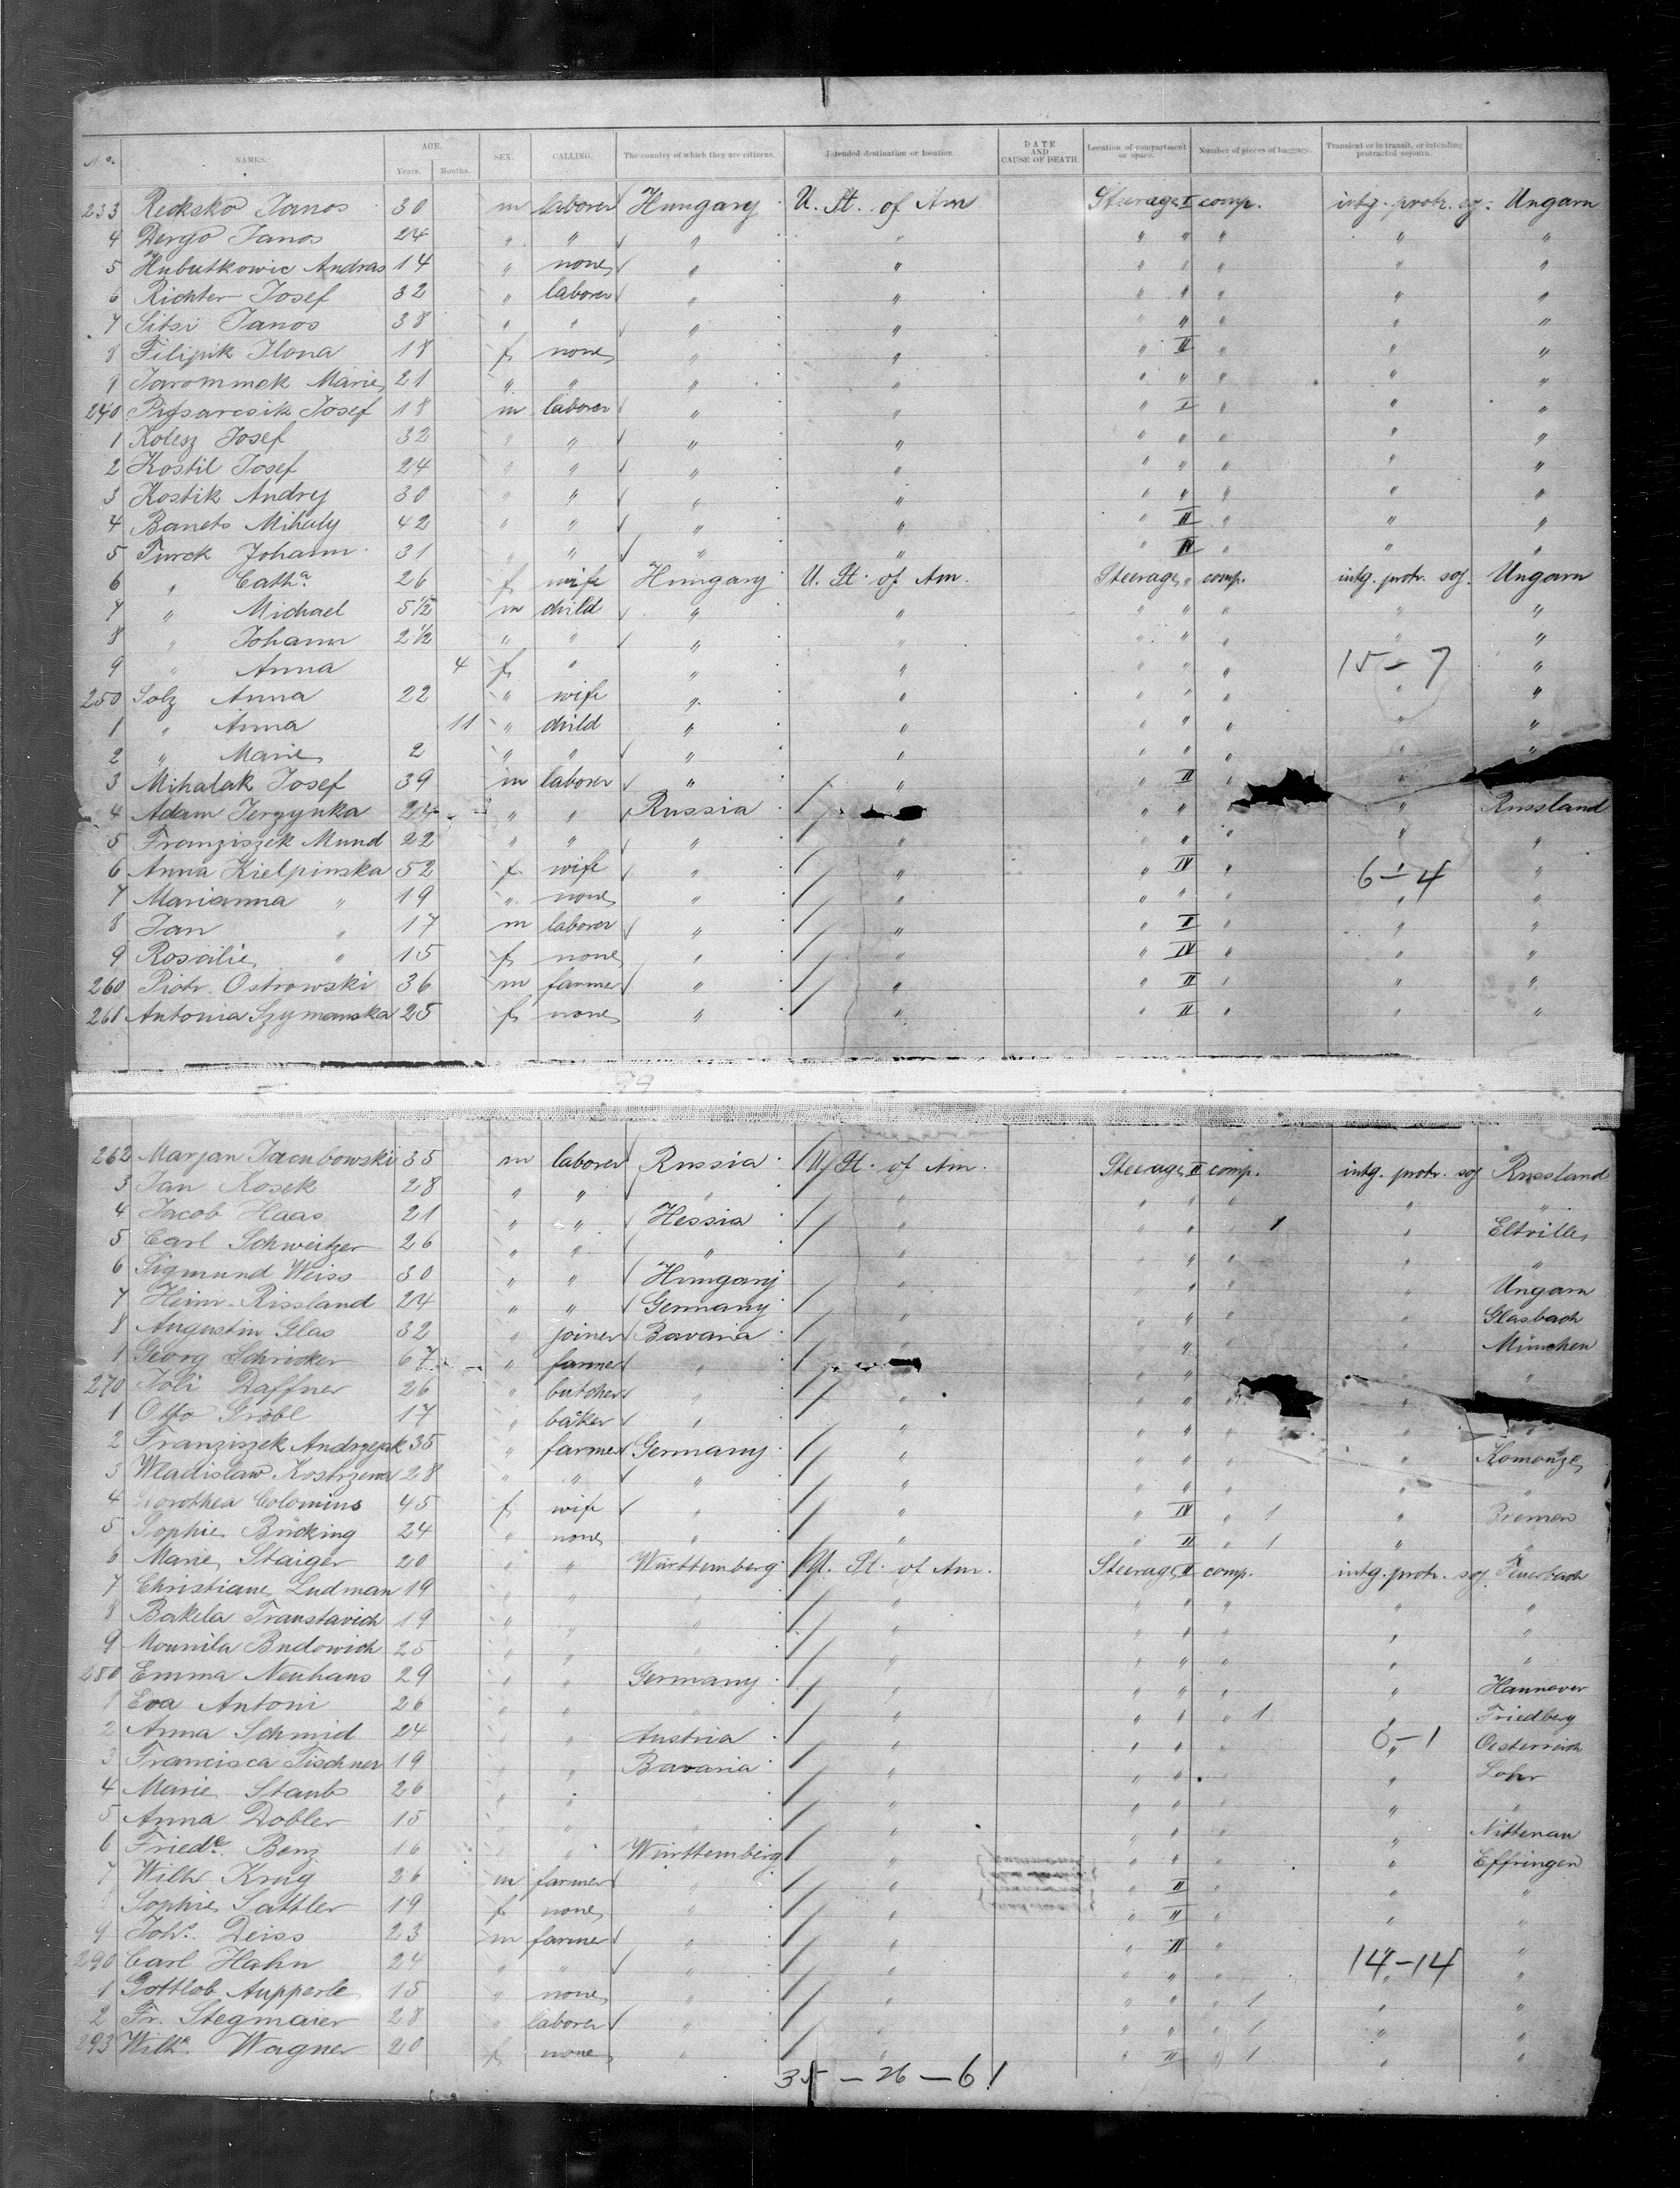 No. NAMES. AGE. Years. Months. SEX. CALLING. The country of which they are citizens. Intended destination or location. DATE AND CAUSE OF DEATH. Location of compartment or space. Number of pieces of baggage. Transient or in transit, or intending protracted sojourn.
233 Recksko Janos 30 m laborer Hungary U. St. of Am Steerage I comp. intg. protr. soj. Ungarn
4 Dergo Janos 24 " " " " " " " " "
5 Hubutkowic Andras 14 " none " " " " " " "
6 Richter Josef 32 " laborer " " " " " " "
7 Sitsi Janos 38 " " " " " " " " "
8 Filipik Ilona 18 f none " " " II " " "
9 Jarommek Marie 21 " " " " " " " " "
240 Josef 18 m laborer " " " I " " "
1 Kolesz Josef 32 " " " " " " " " "
2 Kostil Josef 24 " " " " " " " " "
3 Kostik Andrej 30 " " " " " " " " "
4 Banets Mihaly 42 " " " " " II " " "
5 Turck Johann 31 " " " " " IV " " "
6 " Catha 26 f wife Hungary U. St. of Am. Steerage " comp. intg. protr. soj. Ungarn
7 " Michael 5 1/2 m child " " " " " " "
8 " Johann 2 1/2 " " " " " " " " "
9 " Anna 4 f " " " " " " 15 - 7 "
250 Solz Anna 22 " wife " " " " " " "
1 " Anna 11 " child " " " " " " "
2 " Marie 2 " " " " " " " " "
3 Mihalak Josef 39 m laborer " " " II " " "
4 Adam Jerzynka 24 " " Russia " " " " Russland
5 Franziszek Mund 22 " " " " " " " " "
6 Anna Kielpinska 52 f wife " " " IV " 6 - 4 "
7 Marianna " 19 " none " " " " " " "
8 Jan " 17 m laborer " " " I " " "
9 Rosalie " 15 f none " " " IV " " "
260 Piotr Ostrowski 36 m farmer " " " II " " "
261 Antonia Szymanska 25 f none " " " II " " "
262 Marjan Jacubowski 35 m laborer Russia U. St. of Am. Steerage II comp. intg. protr. soj Russland
3 Jan Kosek 28 " " " " " " " " "
4 Jacob Haas 21 " " Hessia " " " " 1 " Eltville
5 Carl Schweitzer 26 " " " " " " " " "
6 Sigmund Weiss 30 " " Hungary " " " " " Ungarn
7 Heinr. Rissland 24 " " Germany " " " " " Glasbach
8 Augustin Glas 32 " joiner Bavaria " " " " " München
1 Georg Schricker 67 " farmer " " " " " "
270 Daffner 26 " butcher " " " " " " "
1 Otto Gröbl 17 " baker " " " " " " "
2 Franziszek Andrzejak 35 " farmer Germany " " " " " Komonze
3 Wladislaw Kostrzewa 28 " " " " " " " " "
4 Dorothea Colomius 45 f wife " " " IV " 1 " Bremen
5 Sophie Bücking 24 " none " " " II " 1 " "
6 Marie Staiger 20 " " Württemberg U. St. of Am. Steerage II comp. intg. protr. soj. Feuerbach
7 Christiane Ludman 19 " " " " " " " " "
8 Bakela Traustavich 19 " " " " " " " " "
9 Mounila Budowich 25 " " " " " " " " "
280 Emma Neuhaus 29 " " Germany " " " " " Hannover
1 Eva Antoni 26 " " " " " " " 1 " Friedberg
2 Anna Schmid 24 " " Austria " " " " 0 - 1 Oesterreich
3 Francisca Tischner 19 " " Bavaria " " " " " Lohr
4 Marie Staub 26 " " " " " " " " "
5 Anna Dobler 15 " " " " " " " " Nittenau
6 Friede. Benz 16 " " Württemberg " " " " " Effringen
7 Wilh Krug 26 m farmer " " " II " " "
Sophie Sattler 19 f none " " " II " " "
9 Johs. Deiss 23 m farmer " " " II " " "
290 Carl Hahn 24 " " " " " " " 14 - 14 "
1 Gottlob Aupperle 15 " none " " " " " 1 " "
2 Fr. Stegmaier 28 " laborer " " " " " 1 " "
293 Wilha. Wagner 20 f none " " " II " 1 " "
35 - 26 - 61